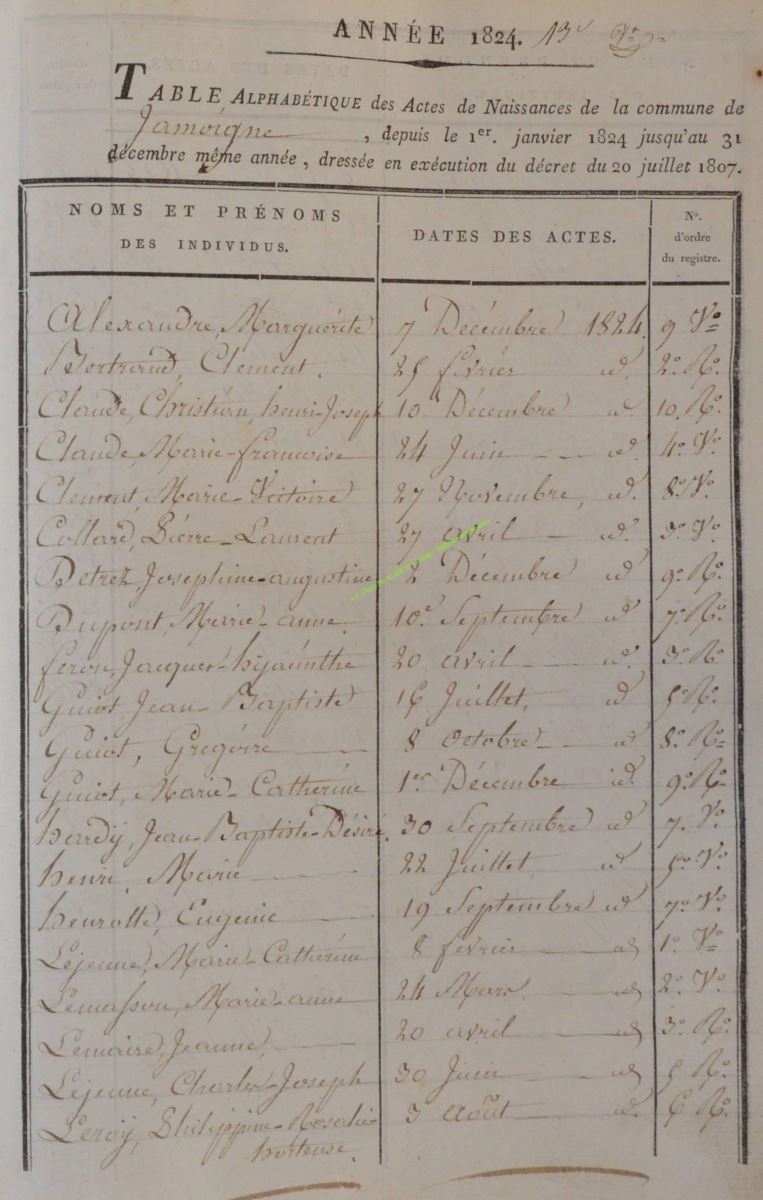 ANNÉE 1824. 13e Vo
TABLE ALPHABÉTIQUE des Actes de Naissances de la commune de
Jamoigne, depuis le 1er. janvier 1824 jusqu'au 31
décembre même année, dressée en exécution du décret du 20 juillet 1807.
NOMS ET PRÉNOMS DES INDIVIDUS. DATES DES ACTES. No. d'ordre du registre.
Alexandre, Marguérite 7 Décembre 1824. 9 Vo
Bertrand, Clément. 25 février id. 2o Ro.
Claude, Christian, henri-Joseph 10 Décembre id. 10. Ro.
Claude, Marie-francoise 24 Juin id. 4o Vo.
Clement, Marie-Victoire 27 Novembre, id. 8o Vo.
Collard, Pierre-Laurent 27 avril id. 3o Vo.
Detrez, Josephine-augustine 2 Décembre id 9o Ro.
Dupont, Marie-anne 10e Septembre id 7o Ro.
feron, Jacques-hyacinthe 20 avril id. 3o Ro.
Guiot, Jean-Baptiste 16 Juillet, id 5o Ro.
Guiot, Grégoire 8 octobre id 8o Ro
Guiot, Marie-Catherine 1er Décembre id. 9o Ro
hardy, Jean-Baptiste-Désiré. 30 Septembre id 7o Vo.
henri, Marie 22 Juillet id 5o Vo.
henrotte, Eugenie 19 Septembre id 7o Vo.
Lejeune, Marie-Catherine 8 février id 1o Vo
Lemasson, Marie-anne 24 Mars id 2o Vo.
Lemaire, Jeanne, 20 avril id 3o Ro.
Lejeune, Charles-Joseph 30 Juin id 5 Ro.
Leroy, Philippine-Rosalie- 3 août id. 6 Ro.
hortense.